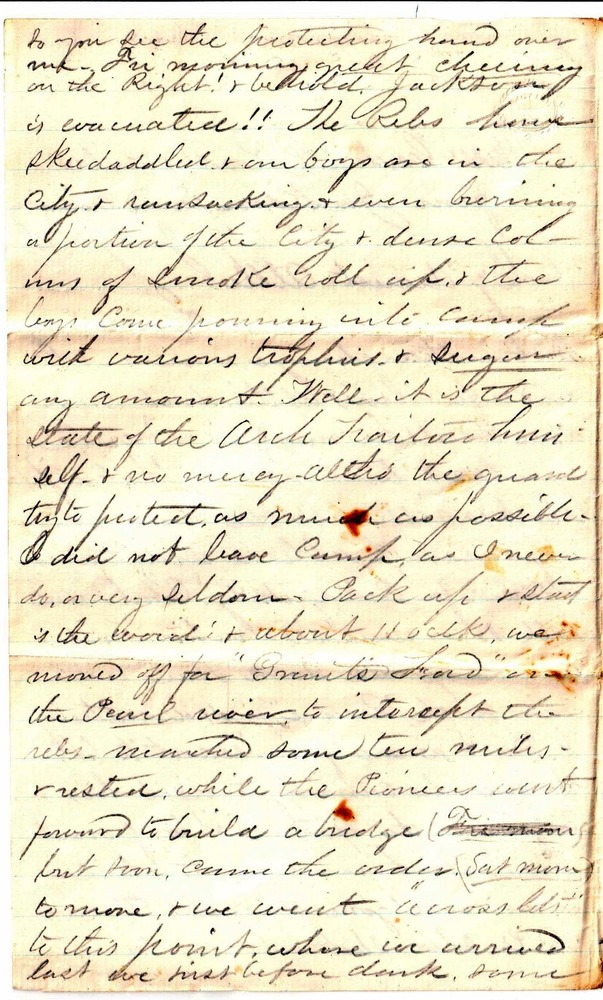 so you see the protecting hand over
me - Fri morning great cheering
on the Right! & behold, Jackson
is evacuated!! The Rebs have
skedaddled. & our boys are in the
City, & ransacking, & even burning
a portion of the City & dense Col-
ums of smoke roll up, & the
boys Come pouring into camp
with various trophies. & sugar
any amount. Well - it is the
state of the Arch Traitor him
self - & no mercy - altho' the guards
try to protect, as much as possible -
I did not leave Camp, as I never
do, or very seldom - Pack up & start
is the word! & about 11 oclk, we
moved off for "Grant's Ford" on
the Pearl river, to intercept the
rebs - marched some ten miles -
& rested, while the Pioneers went
forward to build a bridge (Fri morn
but soon, came the order, (Sat morn)
to move, & we went "across lots"
to this point, where we arrived
last eve just before dark, some